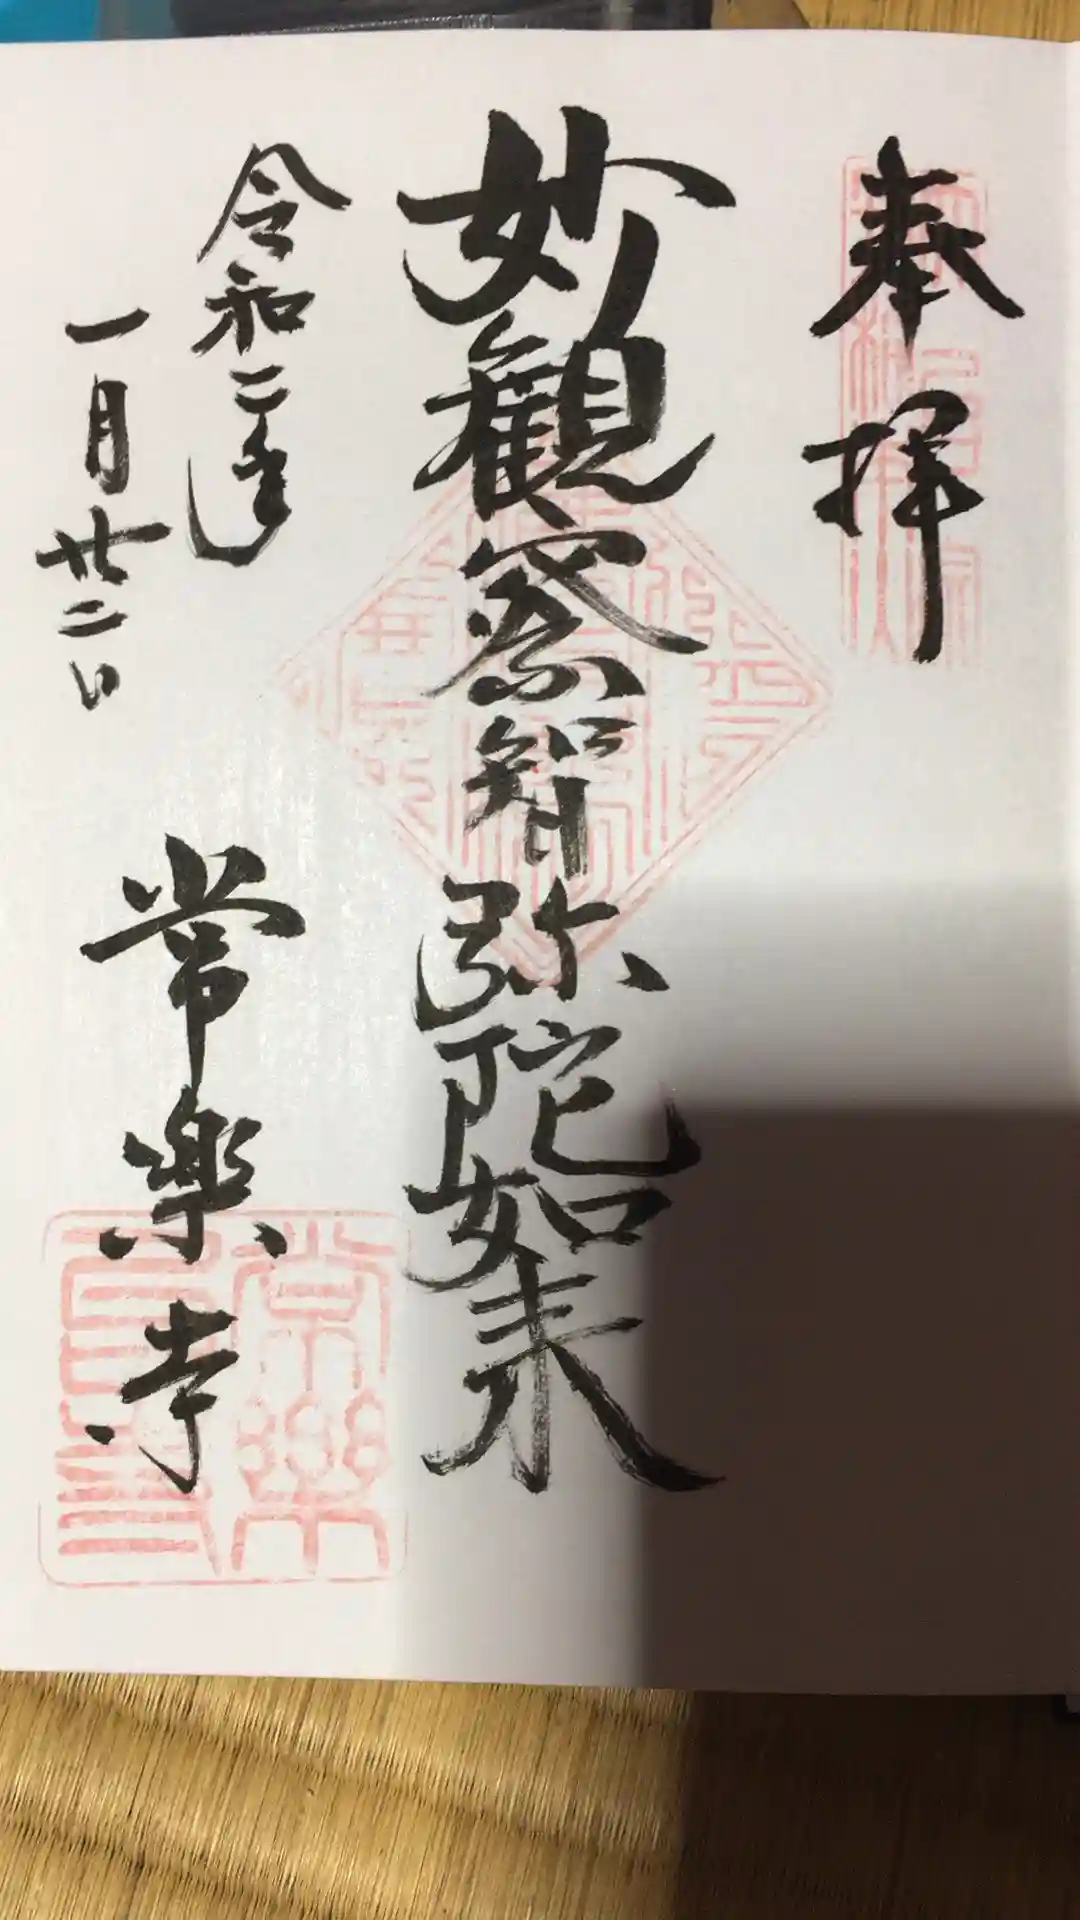 奉拝
妙観察智弥陀如来
令和二年
一月廿二日
常楽寺